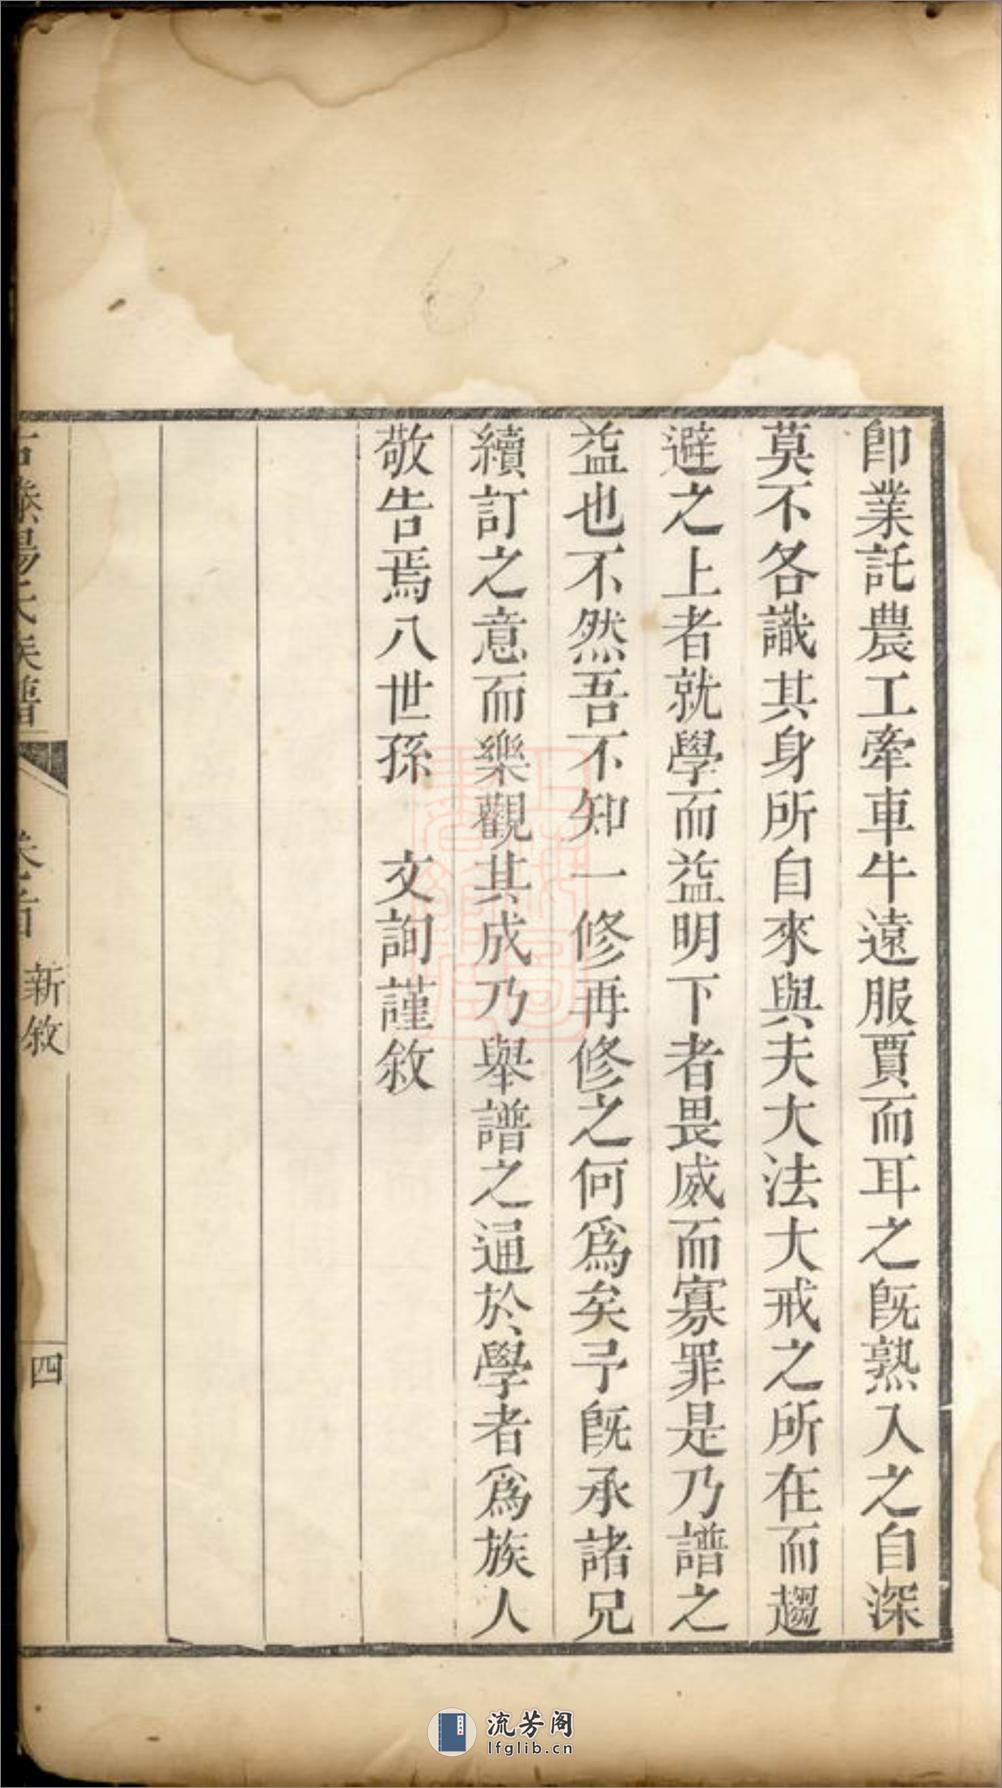 卽業託農工牽車牛遠服賈而耳之旣熟入之自深
莫不各識其身所自來與夫大法大戒之所在而趨
避之上者就學而益明下者畏威而寡罪是乃譜之
益也不然吾不知一修再修之何爲矣予旣承諸兄
續訂之意而樂觀其成乃舉譜之通於學者爲族人
敬告焉八世孫　文詢謹敘
楊氏族譜
卷首
新敘
四
流芳阁
lfglib.cn